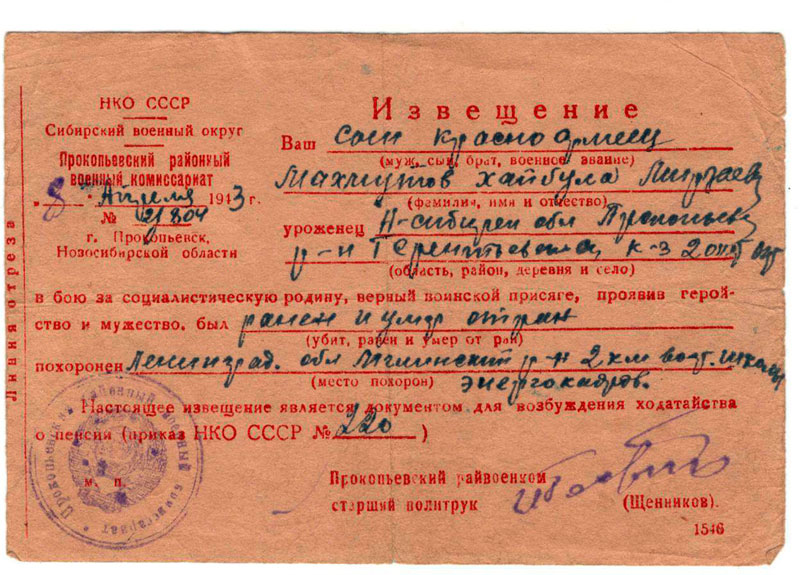 НКО СССР
Сибирский военный округ
Прокопьевский районный
военный комиссариат
"8" Апреля 1943 г.
№ 21804
г. Прокопьевск,
Новосибирской области
Линия отреза
Извещение
Ваш сын красноармеец
(муж, сын, брат, военное звание)
Махмутов Хайбула
(фамилия, имя и отчество)
уроженец Н-сибирск обл Прокопьев
р-н к-з
(область, район, деревня и село)
в бою за социалистическую родину, верный воинской присяге, проявив герой-
ство и мужество, был ранен и умер от ран
(убит, ранен и умер от ран)
похоронен Ленинград. обл Мгинский р-н 2 км вост. школы
(место похорон) энергокадров.
Настоящее извещение является документом для возбуждения ходатайства
о пенсии (приказ НКО СССР № 220 )
Прокопьевский райвоенком
старший политрук (Щенников).
м. п.
1546